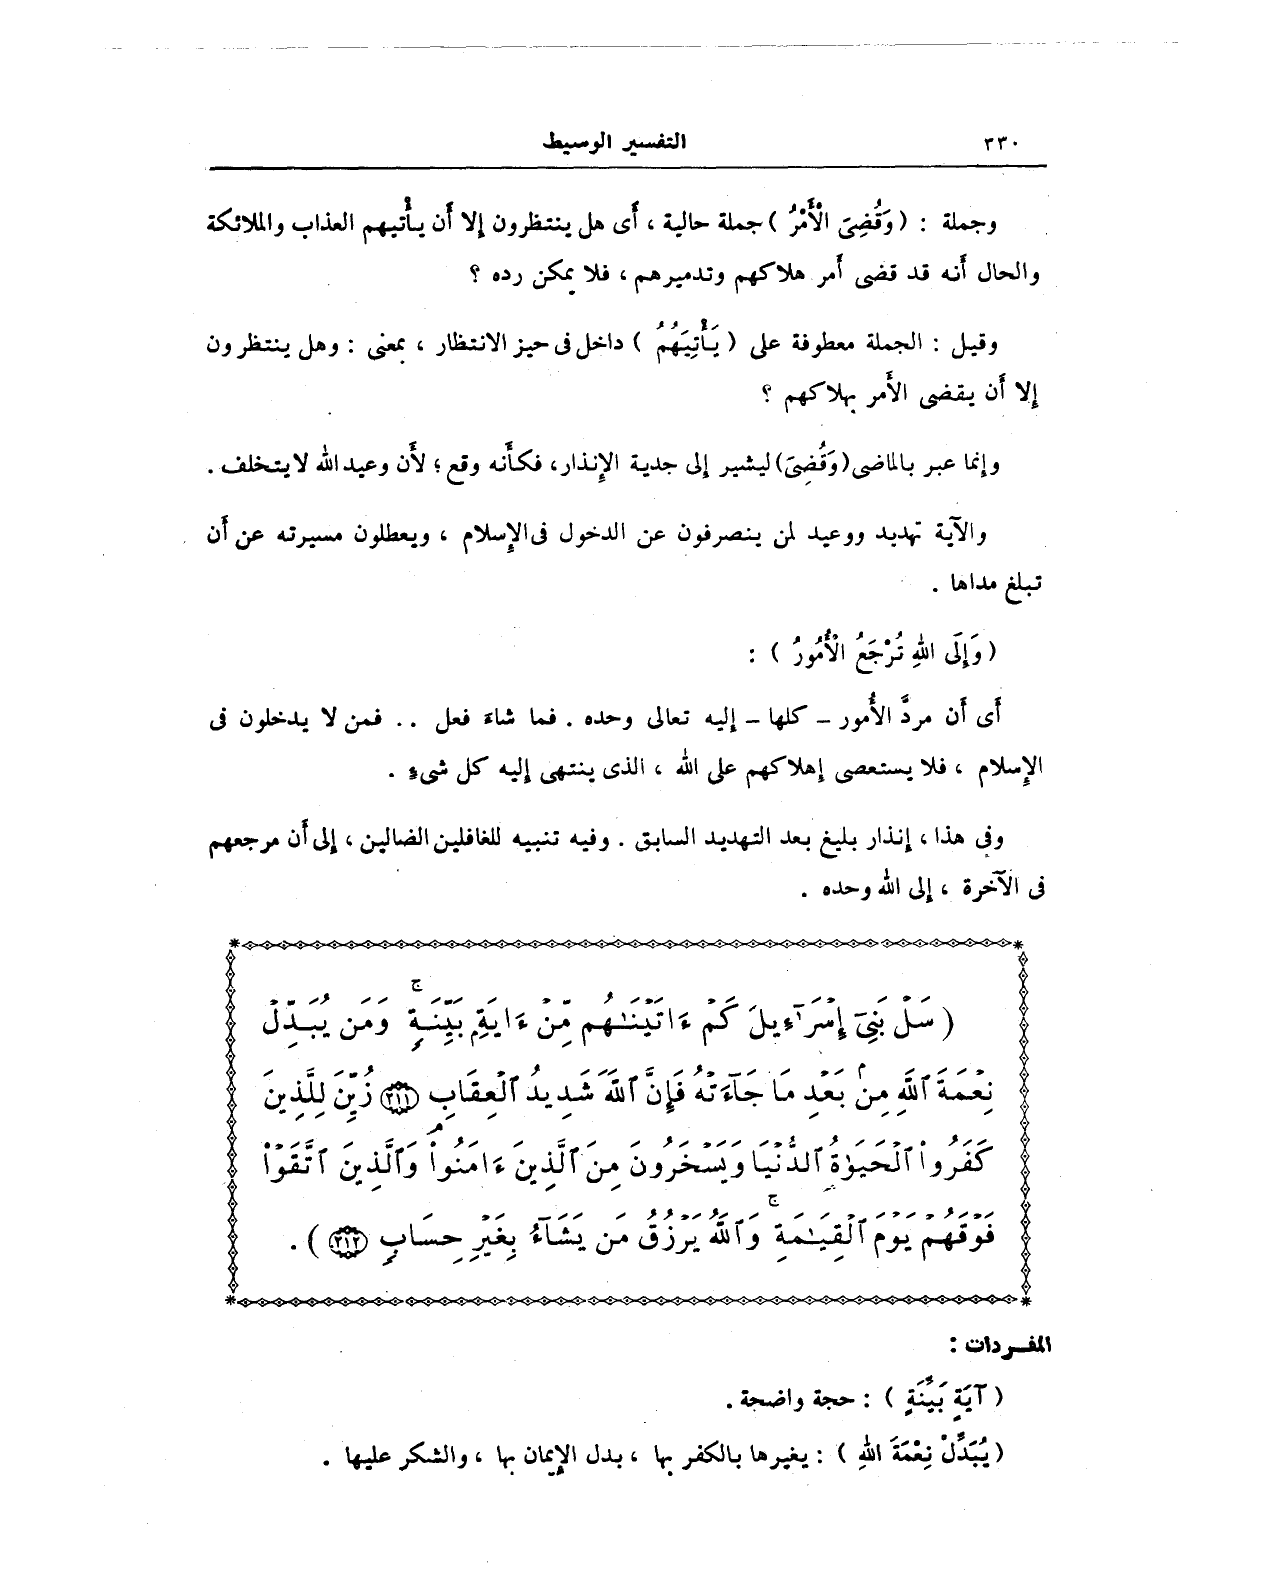 ٣٣٠
التفسير الوسيط
وجملة : ( وَقُضِىَ الْأَمْرُ ) جملة حالية ، أى هل ينتظرون إلا أن يأتيهم العذاب والملائكة
والحال أنه قد قضى أمر هلاكهم وتدميرهم ، فلا يمكن رده ؟
وقيل : الجملة معطوفة على ( يَأْتِيَهُمُ ) داخل فى حيز الانتظار ، بمعنى : وهل ينتظرون
إلا أن يقضى الأمر بهلاكهم ؟
وإنما عبر بالماضى (وَقُضِىَ) ليشير إلى جدية الإنذار، فكأنه وقع ؛ لأن وعيد الله لا يتخلف .
والآية تهديد ووعيد لمن ينصرفون عن الدخول فى الإسلام ، ويعطلون مسيرته عن أن
تبلغ مداها .
( وَإِلَى اللهِ تُرْجَعُ الْأُمُورُ ) :
أى أن مردَّ الأُمور – كلها – إليه تعالى وحده . فما شاءَ فعل .. فمن لا يدخلون فى
الإسلام ، فلا يستعصى إهلاكهم على الله ، الذى ينتهى إليه كل شىءٍ .
وفى هذا ، إنذار بليغ بعد التهديد السابق . وفيه تنبيه للغافلين الضالين ، إلى أن مرجعهم
فى الآخرة ، إلى الله وحده .
( سَلْ بَنِىٓ إِسْرَٰٓءِيلَ كَمْ ءَاتَيْنَٰهُم مِّنْ ءَايَةِۭ بَيِّنَةٍۚ وَمَن يُبَدِّلْ
نِعْمَةَ ٱللَّهِ مِنۢ بَعْدِ مَا جَآءَتْهُ فَإِنَّ ٱللَّهَ شَدِيدُ ٱلْعِقَابِ ﴿٢١١﴾ زُيِّنَ لِلَّذِينَ
كَفَرُوا۟ ٱلْحَيَوٰةُ ٱلدُّنْيَا وَيَسْخَرُونَ مِنَ ٱلَّذِينَ ءَامَنُوا۟ وَٱلَّذِينَ ٱتَّقَوْا۟
فَوْقَهُمْ يَوْمَ ٱلْقِيَٰمَةِۚ وَٱللَّهُ يَرْزُقُ مَن يَشَآءُ بِغَيْرِ حِسَابٍ ﴿٢١٢﴾ ) .
المفردات :
( آيَةٍ بَيِّنَةٍ ) : حجة واضحة .
( يُبَدِّلْ نِعْمَةَ اللهِ ) : يغيرها بالكفر بها ، بدل الإيمان بها ، والشكر عليها .